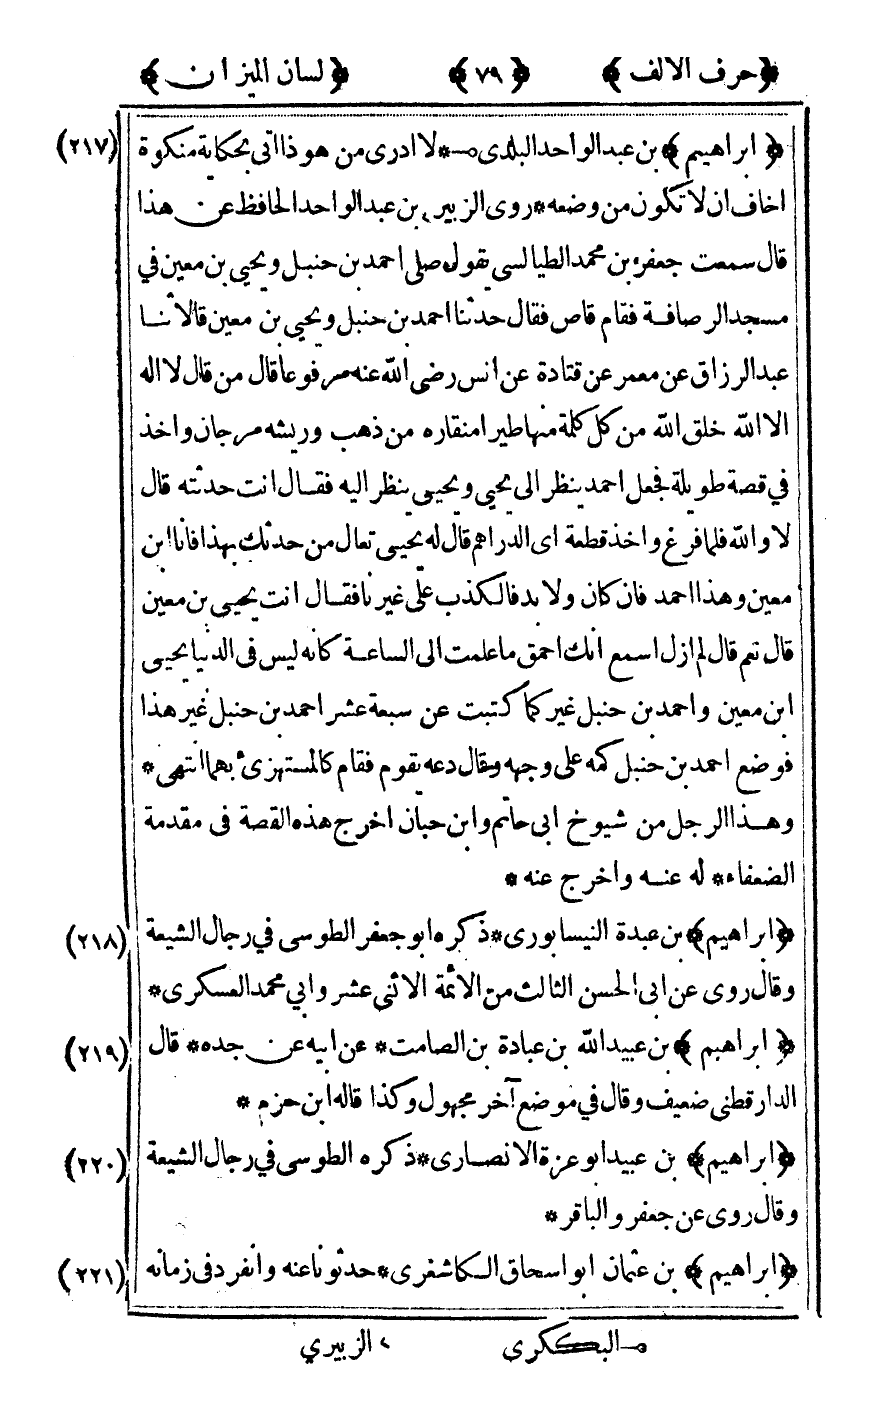 ﴿حرف الالف﴾ ﴿٧٩﴾ ﴿لسان الميزان﴾
﴿ابراهيم﴾ بن عبدالواحد البلدى ــه * لا ادرى من هو ذا اتى بحكاية منكرة (٢١٧)
اخاف ان لا تكون من وضعه * روى الزبير ٢ بن عبدالواحد الحافظ عن هذا
قال سمعت جعفر بن محمد الطيالسي يقول صلى احمد بن حنبل ويحيى بن معين في
مسجد الرصافة فقام قاص فقال حدثنا احمد بن حنبل ويحيى بن معين قالا ثنا
عبدالرزاق عن معمر عن قتادة عن انس رضى الله عنه مرفوعا قال من قال لا اله
الا الله خلق الله من كل كلمة منها طيرا منقاره من ذهب وريشه مرجان واخذ
في قصة طويلة فجعل احمد ينظر الى يحيى ويحيى ينظر اليه فقال انت حدثته قال
لا والله فلما فرغ واخذ قطعة اى الدراهم قال له يحيى تعال من حدثك بهذا فانا ابن
معين وهذا احمد فان كان ولا بد فالكذب على غيرنا فقال انت يحيى بن معين
قال نعم قال لم ازل اسمع انك احمق ما علمت الى الساعة كانه ليس فى الدنيا يحيى
ابن معين واحمد بن حنبل غيركما كتبت عن سبعة عشر احمد بن حنبل غير هذا
فوضع احمد بن حنبل كمه على وجهه وقال دعه يقوم فقام كالمستهزئ بهما انتهى *
وهذا الرجل من شيوخ ابى حاتم وابن حبان اخرج هذه القصة فى مقدمة
الضعفاء * له عنه واخرج عنه *
﴿ابراهيم﴾ بن عبدة النيسابورى * ذكره ابو جعفر الطوسى في رجال الشيعة (٢١٨)
وقال روى عن ابى الحسن الثالث من الائمة الاثنى عشر وابي محمد العسكرى *
﴿ابراهيم﴾ بن عبيدالله بن عبادة بن الصامت * عن ابيه عن جده * قال (٢١٩)
الدارقطنى ضعيف وقال في موضع آخر مجهول وكذا قاله ابن حزم *
﴿ابراهيم﴾ بن عبيد ابو عزة الانصارى * ذكره الطوسى في رجال الشيعة (٢٢٠)
وقال روى عن جعفر والباقر *
﴿ابراهيم﴾ بن عثمان ابو اسحاق الكاشغرى * حدثونا عنه وانفرد فى زمانه (٢٢١)
ــه البكرى ٢ الزبيري